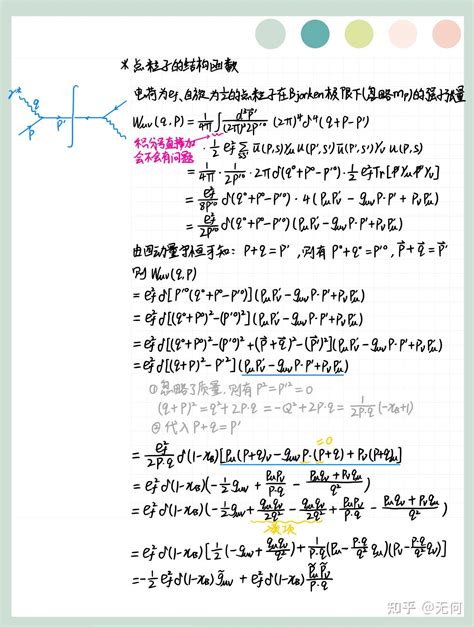 * 点粒子的结构函数
电荷为e_f、自旋为½的点粒子在Bjorken极限下(忽略m_p)的强子张量
γ* q P P'
W_{μν}(q,P) = \frac{1}{4π}∫\frac{d^3\vec{P}'}{(2π)^3 2P'^0} (2π)^4 δ^4(q+P-P')
积分号直接加会不会有问题
· \frac{1}{2} e_f^2 \sum_{SS'} \bar{u}(P,S)γ_μ u(P',S') \bar{u}(P',S')γ_ν u(P,S)
= \frac{1}{4π} · \frac{1}{2P'^0} · 2π δ(q^0+P^0-P'^0) · \frac{1}{2} e_f^2 Tr[\not{P}γ_μ\not{P}'γ_ν]
= \frac{e_f^2}{8P'^0} δ(q^0+P^0-P'^0) · 4(P_μP'_ν - g_{μν}P·P' + P_νP'_μ)
= \frac{e_f^2}{2P'^0} δ(q^0+P^0-P'^0) (P_μP'_ν - g_{μν}P·P' + P_νP'_μ)
由四动量守恒可知: P+q=P', 则有 P^0+q^0=P'^0, \vec{P}+\vec{q}=\vec{P}'
则 W_{μν}(q,P)
= e_f^2 δ[P'^0(q^0+P^0-P'^0)](P_μP'_ν - g_{μν}P·P' + P_νP'_μ)
= e_f^2 δ[(q^0+P^0)^2-(P'^0)^2](P_μP'_ν - g_{μν}P·P' + P_νP'_μ)
= e_f^2 δ[(q^0+P^0)^2-(P'^0)^2+(\vec{P}+\vec{q})^2-(\vec{P}')^2](P_μP'_ν - g_{μν}P·P' + P_νP'_μ)
= e_f^2 δ[(q+P)^2-P'^2](P_μP'_ν - g_{μν}P·P' + P_νP'_μ)
① 忽略了质量, 则有 P^2=P'^2=0
(q+P)^2 = q^2+2P·q = -Q^2+2P·q = \frac{1}{2P·q}(-x_B+1)
② 代入 P+q=P'
=0
= \frac{e_f^2}{2P·q} δ(1-x_B)[P_μ(P+q)_ν - g_{μν}P·(P+q) + P_ν(P+q)_μ]
= e_f^2 δ(1-x_B)(-\frac{1}{2}g_{μν} + \frac{P_μP_ν}{P·q} - \frac{P_μq_ν+P_νq_μ}{q^2})
= e_f^2 δ(1-x_B)(-\frac{1}{2}g_{μν} + \frac{q_μq_ν}{2q^2} - \frac{q_μq_ν}{2q^2} + \frac{P_μP_ν}{P·q} - \frac{P_μq_ν+P_νq_μ}{q^2})
= e_f^2 δ(1-x_B)[\frac{1}{2}(-g_{μν}+\frac{q_μq_ν}{q^2}) + \frac{1}{P·q}(P_μ-\frac{P·q}{q^2}q_μ)(P_ν-\frac{P·q}{q^2}q_ν)]
= -\frac{1}{2} e_f^2 δ(1-x_B) \tilde{g}_{μν} + e_f^2 δ(1-x_B) \frac{\tilde{P}_μ\tilde{P}_ν}{P·q}
知乎 @无何